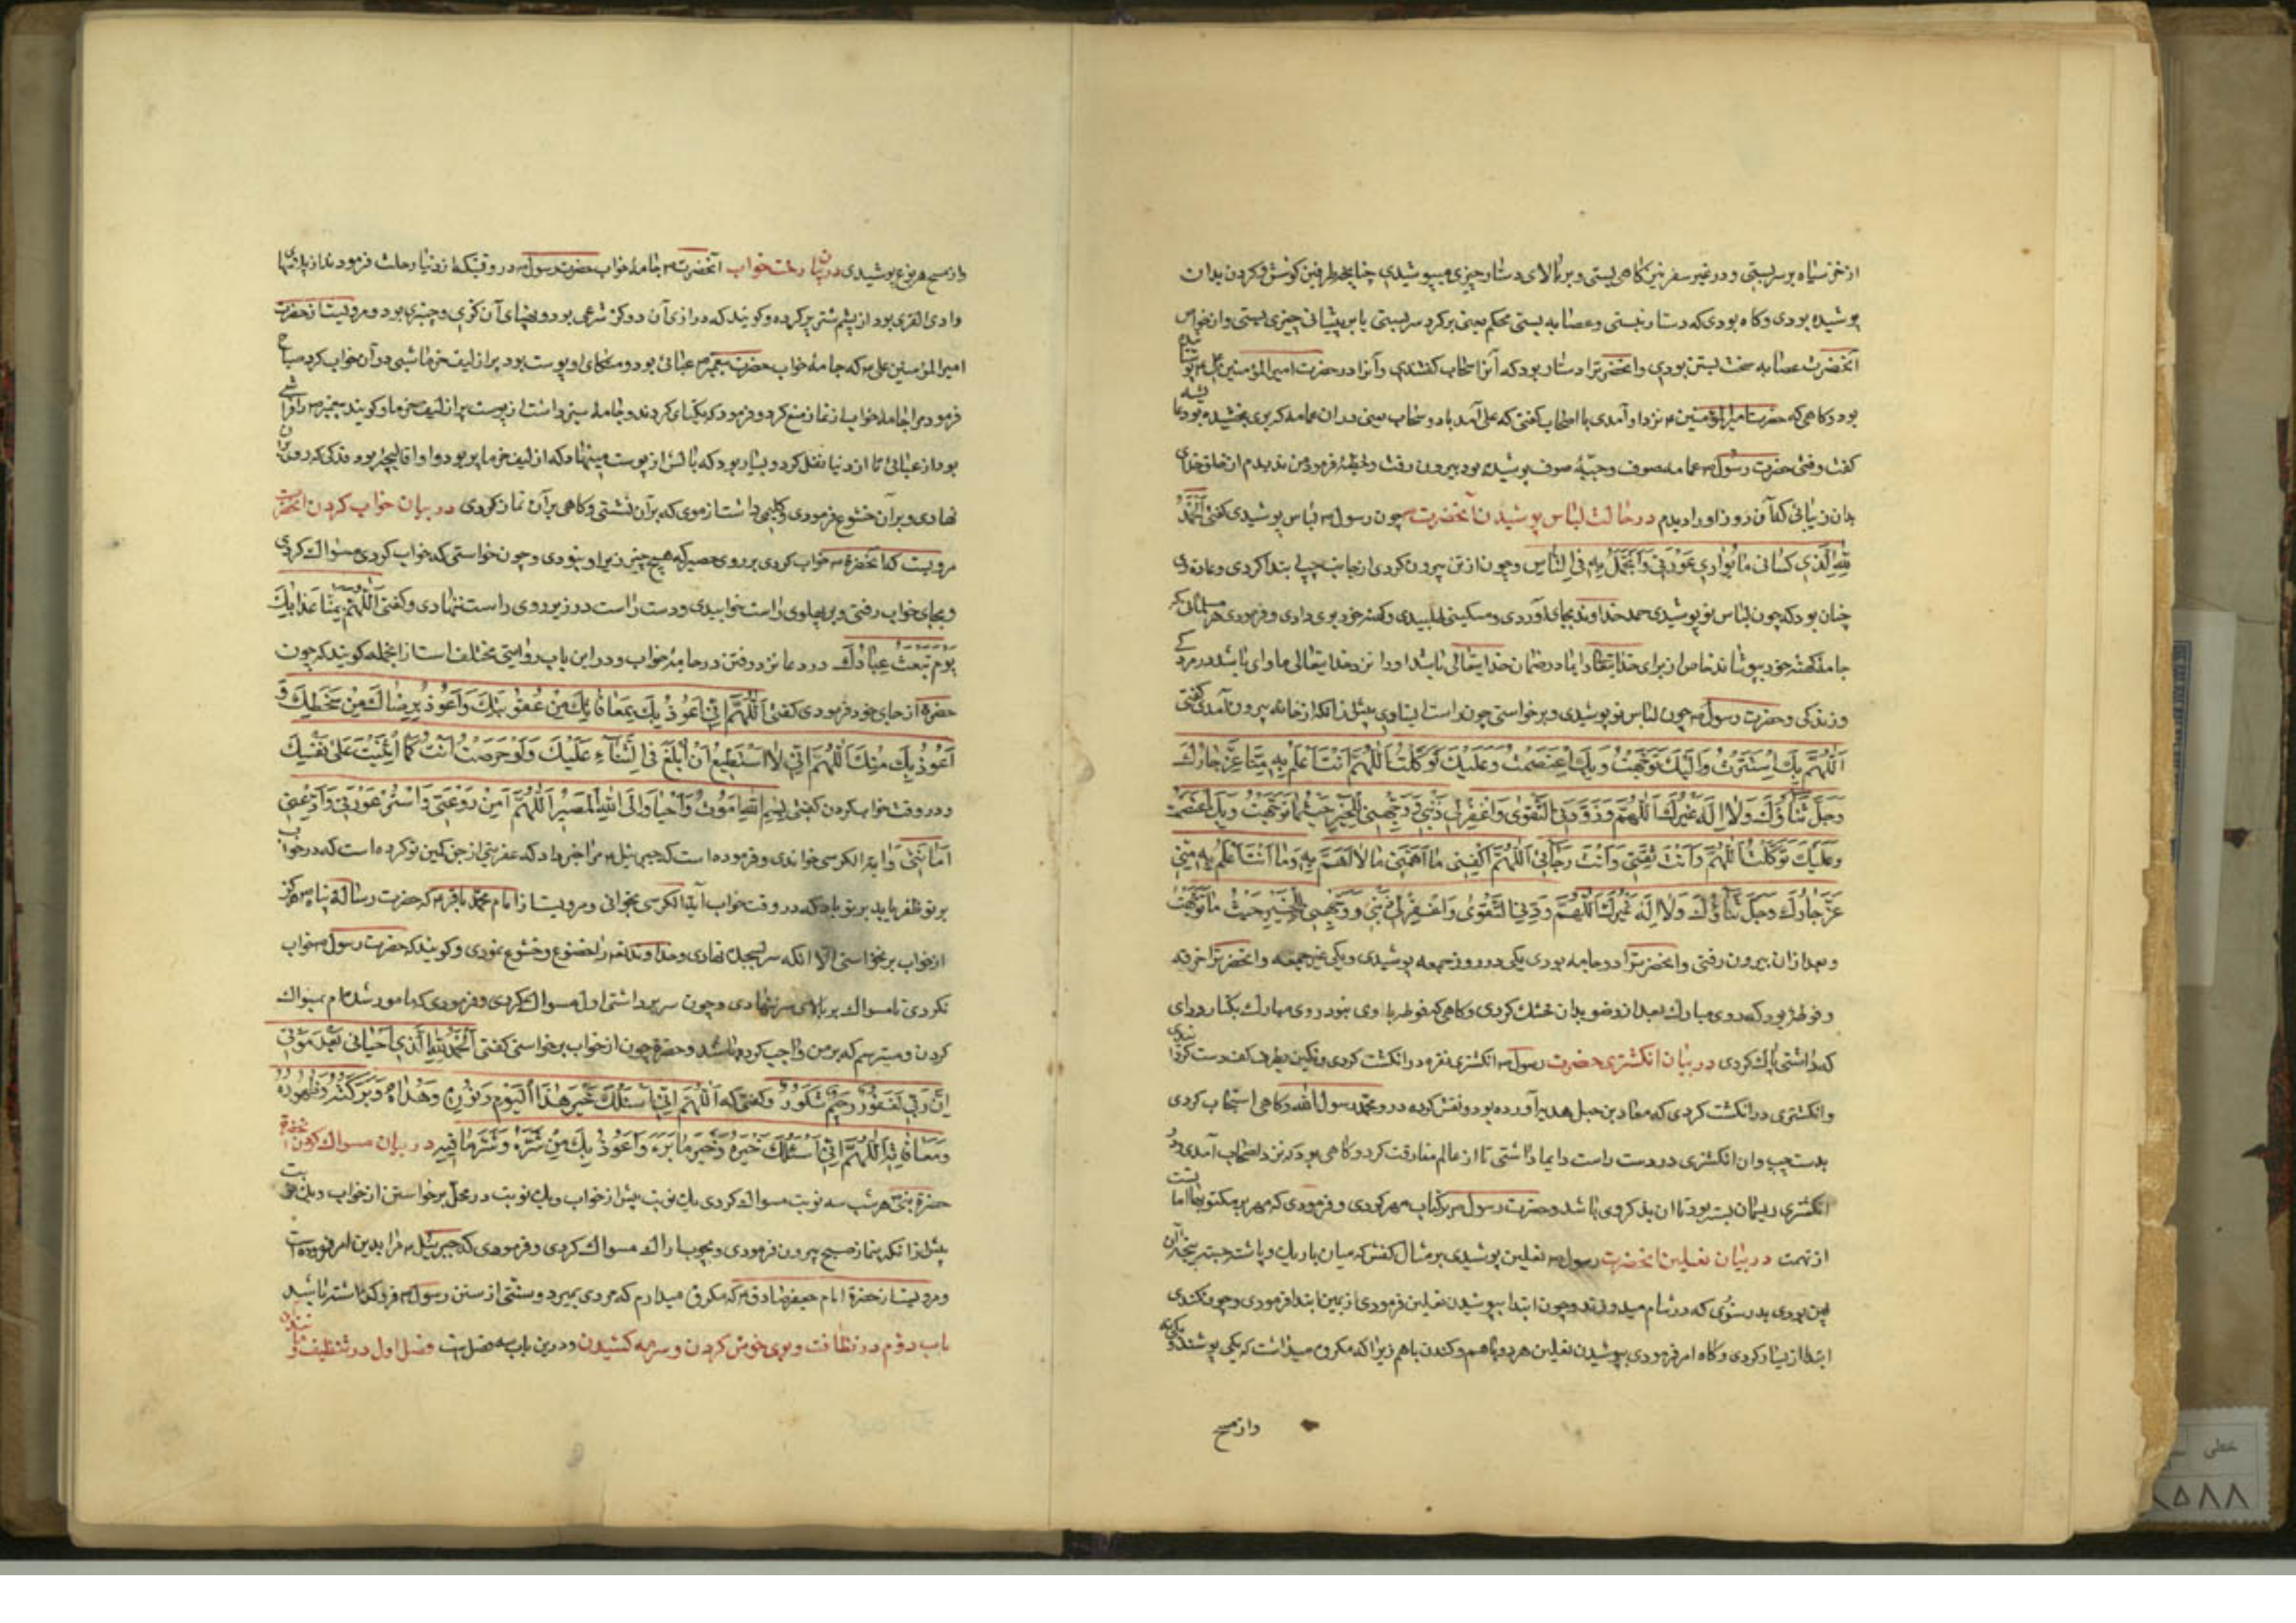 از خز سیاه بر سر بستی و در غیر سفر نیز گاهی بستی و بر بالای دستار چیزی میپوشیدی چنانچه طرفین گوش و گردن بدان
پوشیده بودی و گاه بودی که دستار نبستی و عصابه بستی محکم یعنی بر گرد سر بستی یا بر پیشانی چیزی بستی و از خواص
آنحضرت عصابه سخت بستن بودی و آنحضرترا دستار بود که آنرا سحاب گفتندی و آنرا در حضرت امیرالمؤمنین علی
بود و گاهی که حضرت امیرالمؤمنین نزد او آمدی با اصحاب گفتی که علی آمد با دو سحاب یعنی بدان عمامه که بوی بخشیده بود
گفت وقتی حضرت رسول عمامه صوف و جبّهٔ صوف پوشیده بود بیرون رفت و خطبه فرمود من ندیدم از خلق خدای
بدان زیبائی که آن روز او را دیدم در حالت لباس پوشیدن آنحضرت چون رسول لباس پوشیدی گفتی اَلْحَمْدُ
لِلّهِ الَّذِی کَسانی ما یُواری عَوْرَتی وَاَتَجَمَّلُ بِهِ فِی النّاسِ و چون از تن بیرون کردی از جانب چپ ابتدا کردی و عادت وی
چنان بود که چون لباس نو پوشیدی حمد خداوند بجای آوردی و مسکینی طلبیدی و کهنه خود بوی دادی و فرمودی هر مسلمانی که
جامه کهنه خود بپوشاند خاص از برای خدایتعالی دایما در ضمان خدایتعالی باشد او را نزد خدایتعالی ماوای باشد در مردگی
و زندگی و حضرت رسول چون لباس نو پوشیدی و برخواستی چون راست ایستاوی پیش از آنکه از خانه بیرون آمدی گفتی
اَللّهُمَّ بِکَ اسْتَتَرْتُ وَاِلَیْکَ تَوَجَّهْتُ وَبِکَ اعْتَصَمْتُ وَعَلَیْکَ تَوَکَّلْتُ اَللّهُمَّ اَنْتَ اَعْلَمُ بِهِ مِنّا عَزَّ جارُکَ
وَجَلَّ ثَناؤُکَ وَلا اِلهَ غَیْرُکَ اَللّهُمَّ وَزَوِّدْنِی التَّقْوی وَاغْفِرْلی ذَنْبی وَوَجِّهْنی لِلْخَیْرِ حَیْثُما تَوَجَّهْتُ وَبِکَ اعْتَصَمْتُ
وَعَلَیْکَ تَوَکَّلْتُ اَللّهُمَّ وَاَنْتَ ثِقَتی وَاَنْتَ رَجائی اَللّهُمَّ اکْفِنی ما اَهَمَّنی ما لا اَهْتَمُّ بِهِ وَما اَنْتَ اَعْلَمُ بِهِ مِنّی
عَزَّ جارُکَ وَجَلَّ ثَناؤُکَ وَلا اِلهَ غَیْرُکَ اَللّهُمَّ وَزَوِّدْنِی التَّقْوی وَاغْفِرْلی ذَنْبی وَوَجِّهْنی لِلْخَیْرِ حَیْثُ ما تَوَجَّهْتُ
و بعد از آن بیرون رفتی و آنحضرترا دو جامه بودی یکی در روز جمعه پوشیدی و یکی غیر جمعه و آنحضرترا خرقه
و فوطهٔ بود که روی مبارک بعد از وضو بدان خشک کردی و گاهی که فوطه با وی نبود روی مبارک بکنار ردای
که داشتی پاک کردی در بیان انگشتری حضرت رسول انگشتری نقره در انگشت کردی و نگین بطرف کف دست گردانیدی
و انگشتری در انگشت کردی که معاذ بن جبل هدیه آورده بود و نقش کرده در و محمد رسول الله و گاهی
بدست چپ و آن انگشتری در دست راست دایما داشتی تا از عالم مفارقت کرد و گاهی بودی که نزد اصحاب آمدی و در
انگشتری ریسمان بسته بود تا آن یاد کردی باشد و حضرت رسول بر کتاب مهر کردی و فرمودی که مهر بر مکتوبها
از تهمت در بیان نعلین آنحضرت رسول نعلین پوشیدی بر مثال کفش که میان باریک و پاشنه
یمن بودی بدستوری که در شام میدوزند و چون ابتدا بپوشیدن نعلین فرمودی از یمین ابتدا فرمودی و چون بکندی
ابتدا از یسار کردی و گاه امر فرمودی بپوشیدن نعلین هر دو با هم و کندن با هم زیرا که مکروه میداشت که یکی پوشند و
و از مسح
و از مسح هر نوع پوشیدی در بیان رخت خواب آنحضرت جامهٔ خواب حضرت رسول در وقتیکه از دنیا رحلت فرمودند از
وادی القری بود از پشم شتر پر کرده و گویند که درازی آن دو گز شرعی بود و پهنای آن گزی و چیزی بود و مرویست از حضرت
امیرالمؤمنین علی که جامهٔ خواب حضرت پیغمبر عبائی بود و متکای او پوست بود پر از لیف خرما شبی در آن خواب کرد صباح
فرمود مرا جامه خواب از نماز منع کرد و فرمود که یکتای کردند و جامهٔ داشت از پوست پر از لیف خرما و گویند پیغمبر را فراشی
بود از عبائی تا از دنیا نقل کرد و بسیار بود که بالش از پوست مینهاد که از لیف خرما پر بود و او را قالیچه بود فدکی که
نهادی و بر آن خشوع فرمودی و گلیمی داشت از موی که بر آن نشستی و گاهی بر آن نماز کردی در بیان خواب کردن آنحضرت
مرویست که آنحضرة خواب کردی بر روی حصیر که هیچ چیز زیر او نبودی و چون خواستی که خواب کردی مسواک کردی
و بجای خواب رفتی و بر پهلوی راست خوابیدی و دست راست در زیر روی راست نهادی و گفتی اَللّهُمَّ قِنا عَذابَکَ
یَوْمَ تَبْعَثُ عِبادَکَ در دعا نزد رفتن در جامهٔ خواب و در این باب روایتی مختلف است از انجمله گویند که چون
حضرة از جای خود فرمودی گفتی اَللّهُمَّ اِنّی اَعُوذُ بِکَ بِمُعافاتِکَ مِنْ عُقُوبَتِکَ وَاَعُوذُ بِرِضاکَ مِنْ سَخَطِکَ وَ
اَعُوذُ بِکَ مِنْکَ اَللّهُمَّ اِنّی لا اَسْتَطیعُ اَنْ اَبْلُغَ فِی الثَّناءِ عَلَیْکَ وَلَوْ حَرَصْتُ اَنْتَ کَما اَثْنَیْتَ عَلی نَفْسِکَ
و در وقت خواب کردن گفتی بِسْمِ اللهِ اَمُوتُ وَاَحْیا وَاِلَی اللهِ الْمَصیرُ اَللّهُمَّ آمِنْ رَوْعَتی وَاسْتُرْ عَوْرَتی وَاَدِّ عَنّی
اَمانَتی وَآیة الکرسی خواندی و فرموده است که جبرئیل مرا خبر داد که عفریتی از جن کمین تو کرده است که در خواب
بر تو ظفر یابد بر تو باد که در وقت خواب آیة الکرسی بخوانی و مرویست از امام محمد باقر که حضرت رسالة پناه هرگز
از خواب برنخواستی الا آنکه سر بسجده نهادی و خداوند تعالی را خضوع و خشوع نمودی و گویند که حضرت رسول خواب
نکردی تا مسواک بر بالای سر ننهادی و چون سر برداشتی اول مسواک کردی و فرمودی که مامور شده‌ام بمسواک
کردن و میترسم که بر من واجب کرده باشد و حضرة چون از خواب برخواستی گفتی اَلْحَمْدُ لِلّهِ الَّذی اَحْیانی بَعْدَ مَوْتی
اِنَّ رَبّی لَغَفُورٌ رَحیمٌ شَکُورٌ و گفتی که اَللّهُمَّ اِنّی اَسْئَلُکَ خَیْرَ هذَا الْیَوْمِ وَنُورَهُ وَهُداهُ وَبَرَکَتَهُ وَطَهُورَهُ
وَمُعافاتَهُ اَللّهُمَّ اِنّی اَسْئَلُکَ خَیْرَهُ وَخَیْرَ ما وَاَعُوذُ بِکَ مِنْ شَرِّهِ وَشَرِّ ما فیهِ در بیان مسواک کردن آنحضرة
حضرة نبی هر شب سه نوبت مسواک کردی یک نوبت پیش از خواب و یک نوبت در محل برخواستن از خواب و یک نوبت
پیش از آنکه بنماز صبح بیرون فرمودی و بچوب اراک مسواک کردی و فرمودی که جبرئیل مرا بدین امر فرموده است
و مرویست از حضرة امام جعفر صادق که مکروه میدارم که مردی بمیرد و سنتی از سنن رسول فرو گذاشته باشد
باب دوم در نظافت و بوی خوش کردن و سرمه کشیدن و درین باب سه فصلست فصل اول در تنظیف و
خطی
۸۵۸۸